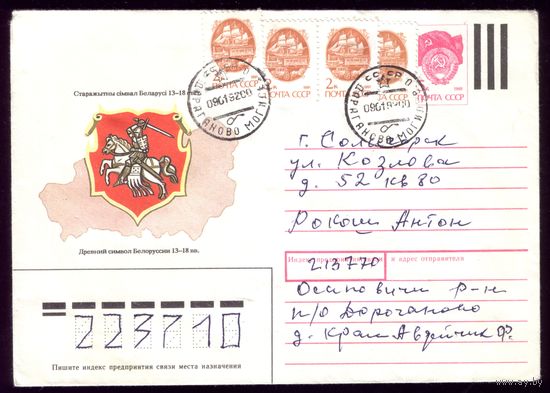 Старажытны сімвал Беларусі 13–18 стст.
Древний символ Белоруссии 13–18 вв.
2к
ПОЧТА СССР
2к
ПОЧТА СССР
ПОЧТА СССР
СССР
ДАРАГАНОВО МОГИЛЕВ.
СССР
ДАРАГАНОВО МОГИЛЕВ.
г. Солигорск
ул. Козлова
д. 52 кв 80
Рокош Антон
Индекс предприятия и адрес отправителя
213770
Осиповичи р-н
п/о Дорочаново
д. Крам Авдейчик Ф.
223710
Пишите индекс предприятия связи места назначения